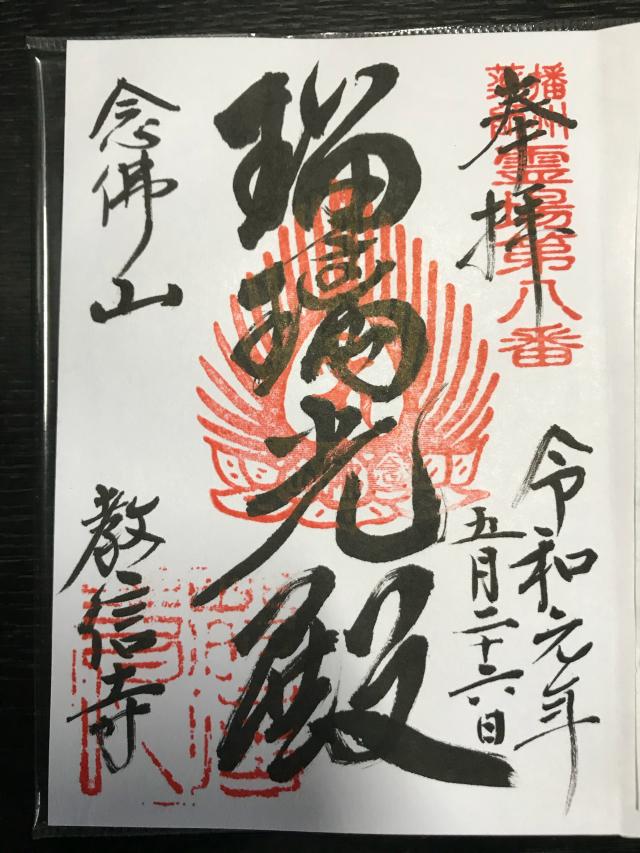 奉拝
播州
薬師
霊場第八番
令和元年
五月二十六日
瑠璃光殿
念佛山
教信寺